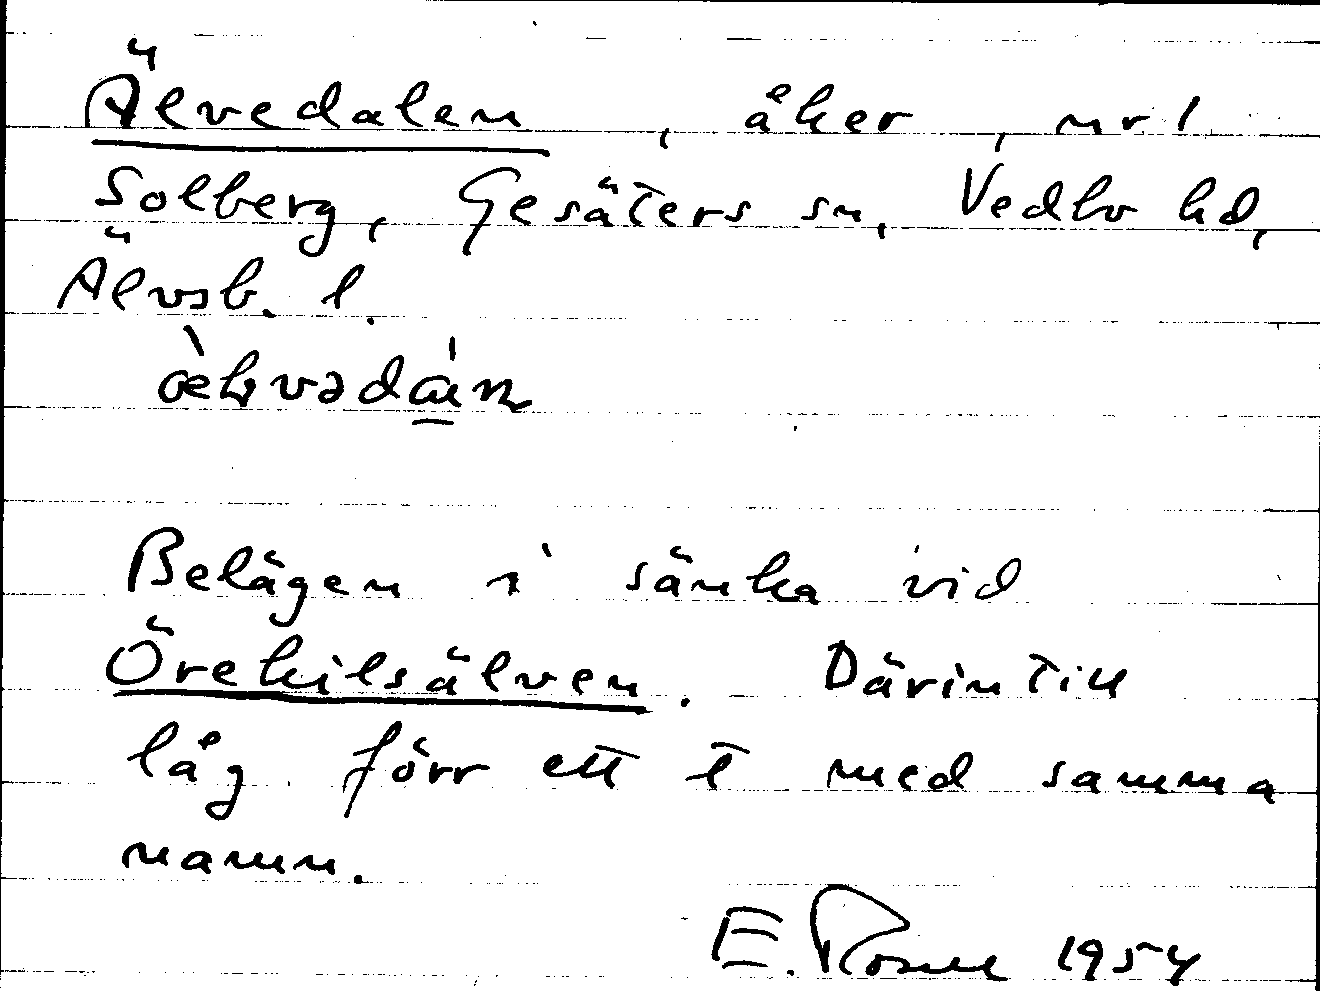 Älvedalen, åker, nr 1
Solberg, Gesäters sn, Vedbo hd,
Älvsb. l.
Belägen i sänka vid
Örekilsälven. Därintill
låg förr ett t med samma
namn.
E. Rosell 1954